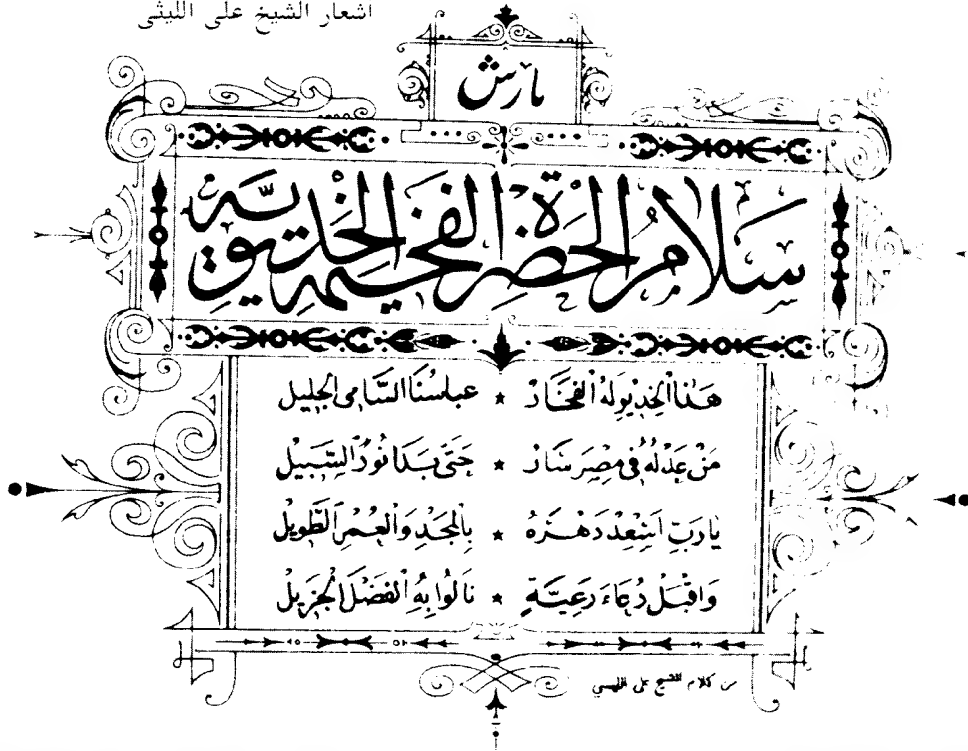 اشعار الشيخ على الليثى
مارش
سَلَامُ الحَضْرَةِ الفَخِيمَةِ الخِدِيوِيَّة
هَذَا الْخِدِيوِ لَهُ الْفَخَارْ ★ عباسُنَا السَّامِى الْجَلِيلْ
مَنْ عَدْلُهُ فِى مِصْرَ سَارْ ★ حَتَّى بَدَا نُورُ السَّبِيلْ
يَا رَبِّ اَسْعِدْ دَهْرَهُ ★ بِالْمَجْدِ وَالْعُمْرِ الطَّوِيلْ
وَاقْبَلْ دُعَاءَ رَعِيَّةٍ ★ نَالُوا بِهِ الْفَضْلَ الْجَزِيلْ
من كلام الشيخ على الليسي